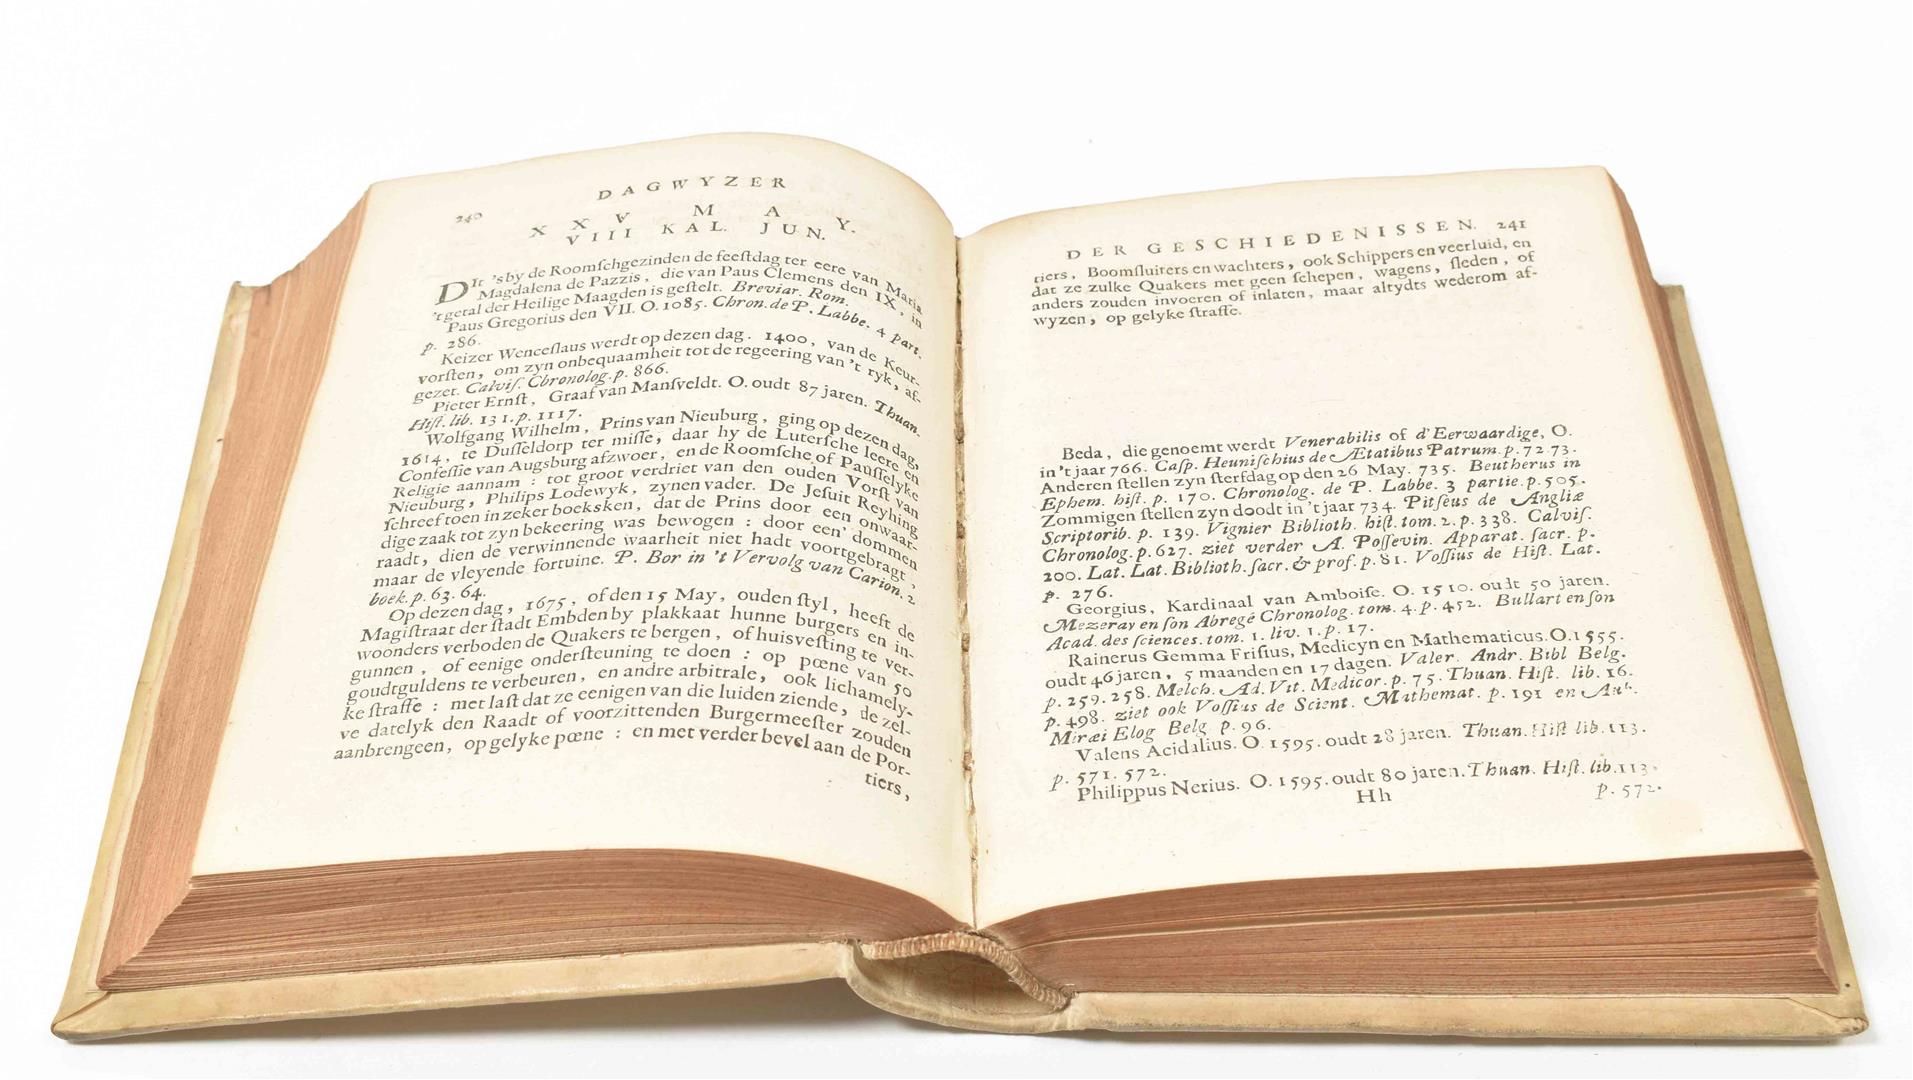 240
DAGWYZER
XXV MAY.
VIII KAL. JUN.
DIt 's by de Roomſchgezinden de feeſtdag ter eere van Maria
Magdalena de Pazzis, die van Paus Clemens den IX, in
't getal der Heilige Maagden is geſtelt. Breviar. Rom.
Paus Gregorius den VII. O. 1085. Chron. de P. Labbe. 4 part.
p. 286.
Keizer Wenceſlaus werdt op dezen dag. 1400, van de Keur-
vorſten, om zyn onbequaamheit tot de regeering van 't ryk, af-
gezet. Calviſ. Chronolog. p. 866.
Pieter Ernſt, Graaf van Manſveldt. O. oudt 87 jaren. Thuan.
Hiſt. lib. 131. p. 1117.
Wolfgang Wilhelm, Prins van Nieuburg, ging op dezen dag,
1614, te Duſſeldorp ter miſſe, daar hy de Luterſche leere en
Confeſſie van Augsburg afzwoer, en de Roomſche of Pauſſelyke
Religie aannam: tot groot verdriet van den ouden Vorſt van
Nieuburg, Philips Lodewyk, zynen vader. De Jeſuit Reyhing
ſchreef toen in zeker boeksken, dat de Prins door een onwaar-
dige zaak tot zyn bekeering was bewogen: door een' dommen
raadt, dien de verwinnende waarheit niet hadt voortgebragt,
maar de vleyende fortuine. P. Bor in 't Vervolg van Carion. 2
boek. p. 63. 64.
Op dezen dag, 1675, of den 15 May, ouden ſtyl, heeft de
Magiſtraat der ſtadt Embden by plakkaat hunne burgers en in-
woonders verboden de Quakers te bergen, of huisveſting te ver-
gunnen, of eenige onderſteuning te doen: op pœne van 50
goudtguldens te verbeuren, en andre arbitrale, ook lichamely-
ke ſtraffe: met laſt dat ze eenigen van die luiden ziende, de zel-
ve datelyk den Raadt of voorzittenden Burgermeeſter zouden
aanbrengeen, op gelyke pœne: en met verder bevel aan de Por-
tiers,
DER GESCHIEDENISSEN. 241
tiers, Boomſluiters en wachters, ook Schippers en veerluid, en
dat ze zulke Quakers met geen ſchepen, wagens, ſleden, of
anders zouden invoeren of inlaten, maar altydts wederom af-
wyzen, op gelyke ſtraffe.
Beda, die genoemt werdt Venerabilis of d'Eerwaardige, O.
in 't jaar 766. Caſp. Heuniſchius de Ætatibus Patrum. p. 72. 73.
Anderen ſtellen zyn ſterfdag op den 26 May. 735. Beutherus in
Ephem. hiſt. p. 170. Chronolog. de P. Labbe. 3 partie. p. 505.
Zommigen ſtellen zyn doodt in 't jaar 734. Pitſeus de Angliæ
Scriptorib. p. 139. Vignier Biblioth. hiſt. tom. 2. p. 338. Calviſ.
Chronolog. p. 627. ziet verder A. Poſſevin. Apparat. ſacr. p.
200. Lat. Lat. Biblioth. ſacr. & prof. p. 81. Voſſius de Hiſt. Lat.
p. 276.
Georgius, Kardinaal van Amboiſe. O. 1510. oudt 50 jaren.
Mezeray en ſon Abregé Chronolog. tom. 4. p. 452. Bullart en ſon
Acad. des ſciences. tom. 1. liv. 1. p. 17.
Rainerus Gemma Friſius, Medicyn en Mathematicus. O. 1555.
oudt 46 jaren, 5 maanden en 17 dagen. Valer. Andr. Bibl Belg.
p. 259. 258. Melch. Ad. Vit. Medicor. p. 75. Thuan. Hiſt. lib. 16.
p. 498. ziet ook Voſſius de Scient. Mathemat. p. 191 en Aub.
Miræi Elog Belg p. 96.
Valens Acidalius. O. 1595. oudt 28 jaren. Thuan. Hiſt lib. 113.
p. 571. 572.
Philippus Nerius. O. 1595. oudt 80 jaren. Thuan. Hiſt. lib. 113.
Hh
p. 572.